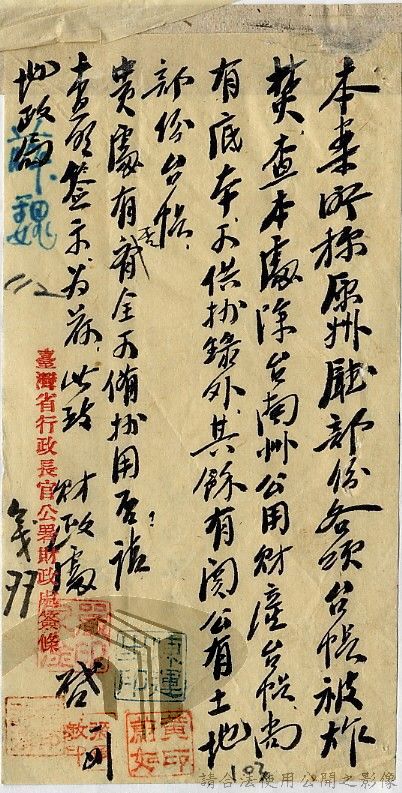 本案所稱原州廳部份各項台帳被炸
焚,查本處除台南州公用財產台帳,尚
有底本,可供抄錄外,其餘有関公有土地
部份台帳,
貴處有否齊全可備抄用否?請
查照簽示為荷,此致
地政局
財政處 啓
臺灣省行政長官公署財政處簽條
103
請合法使用公開之影像